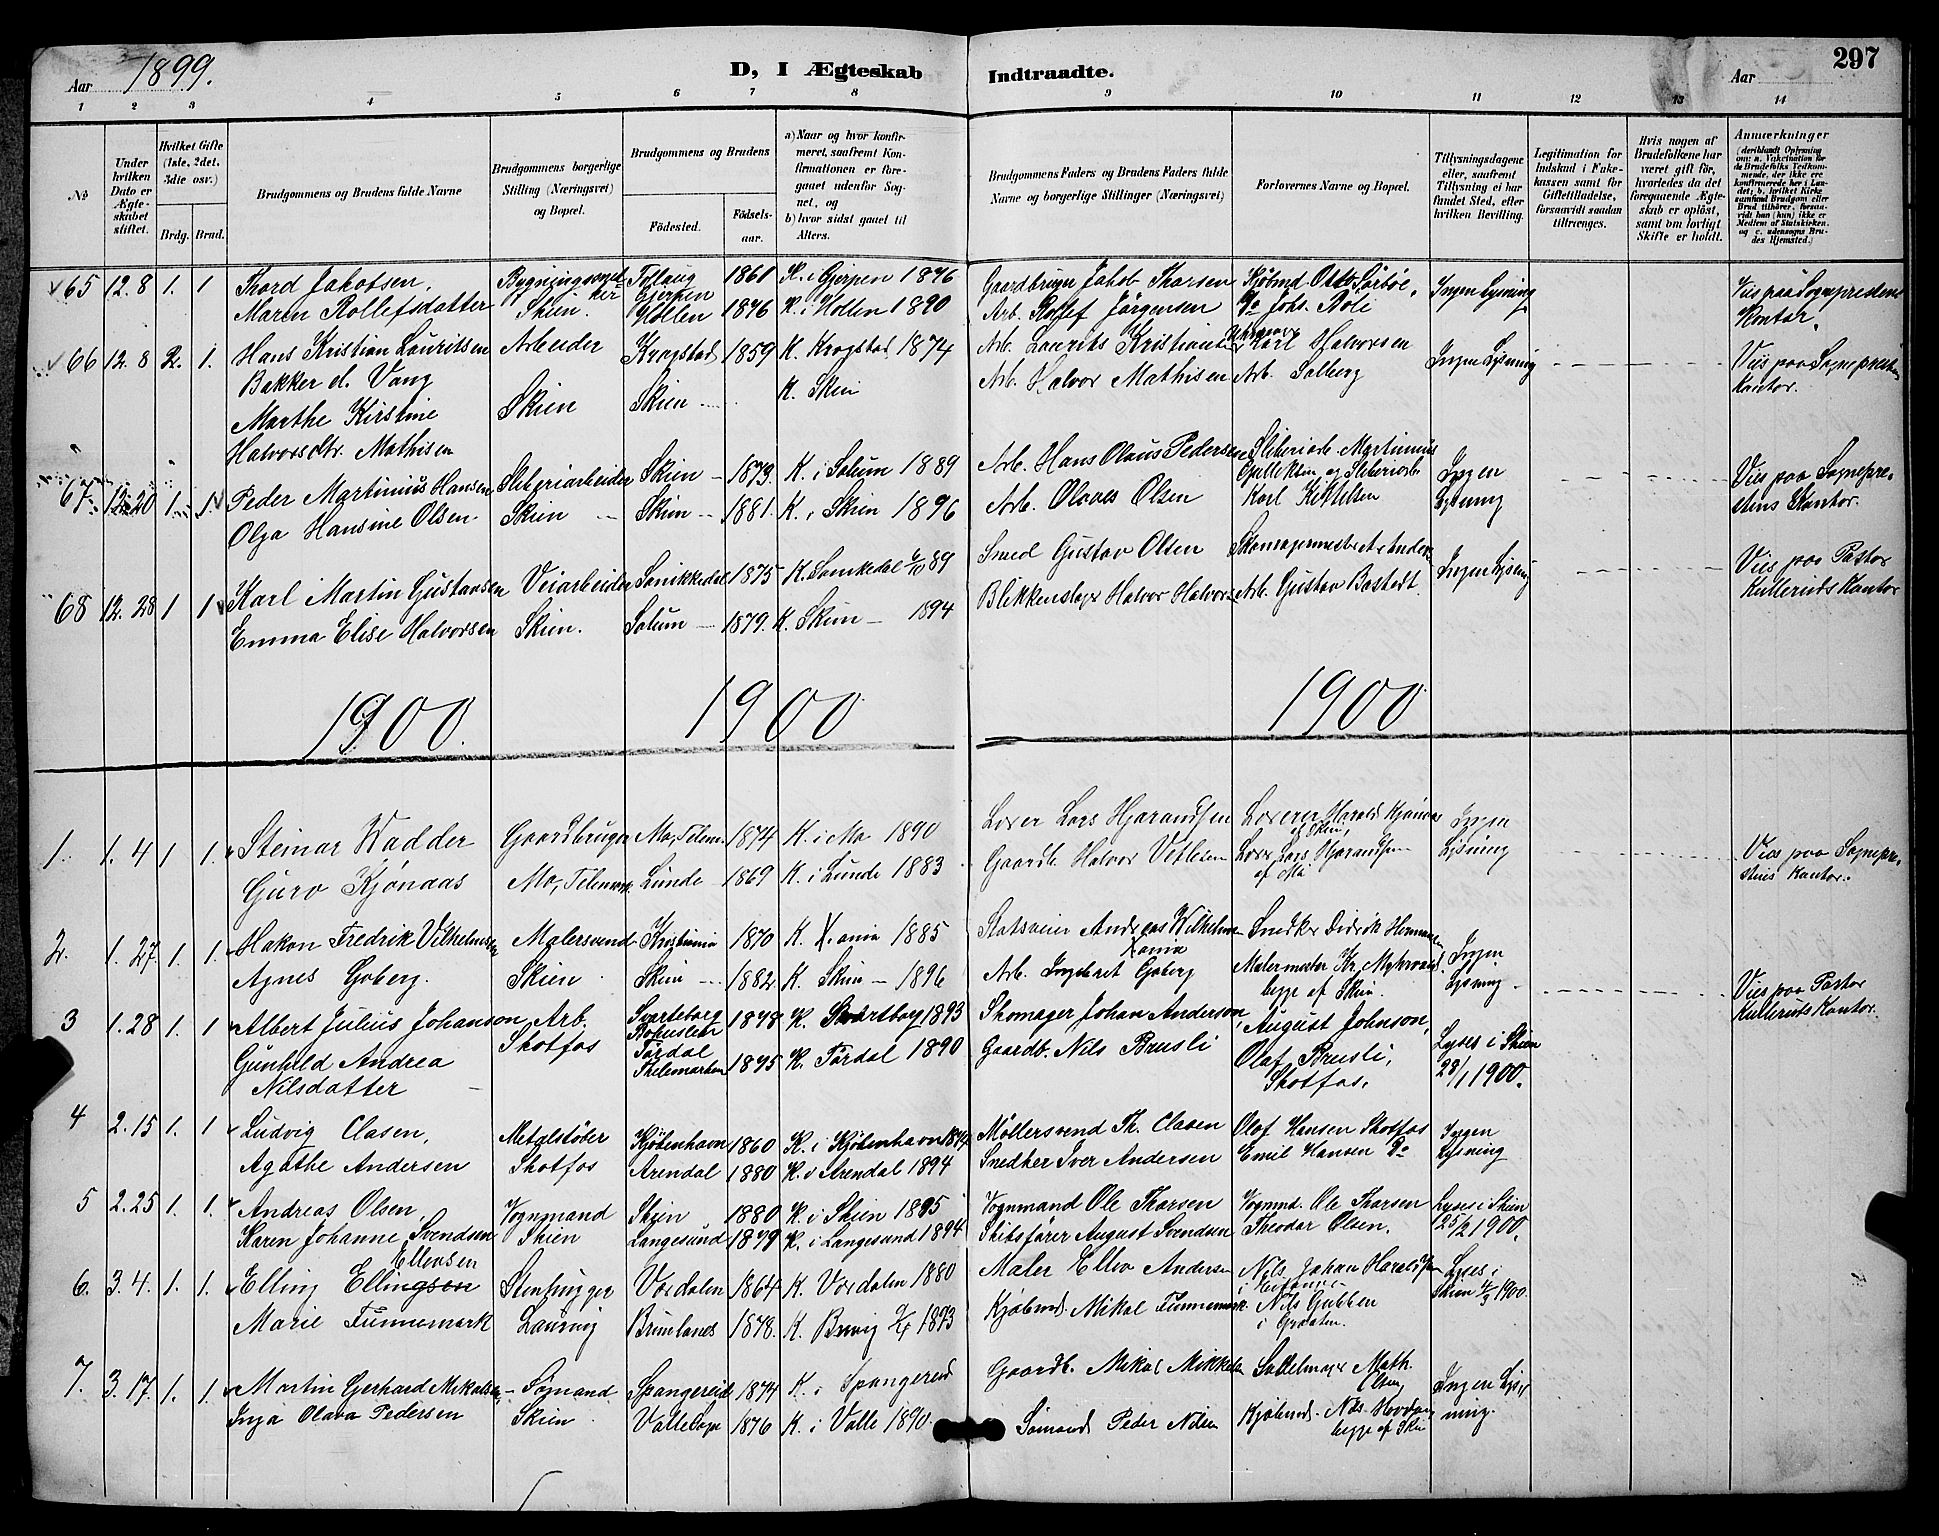 297
Aar 1899.
D, I Ægteskab Indtraadte.
Aar
1 2 3 4 5 6 7 8 9 10 11 12 13 14
No
Under hvilken Dato er Ægteskabet stiftet.
Hvilket Gifte (1ste, 2det, 3die osv.)
Brdg. Brud.
Brudgommens og Brudens fulde Navne
Brudgommens borgerlige Stilling (Næringsvei) og Bopæl.
Brudgommens og Brudens
Fødested. Fødselsaar.
a) Naar og hvor konfirmeret, saafremt Konfirmationen er foregaaet udenfor Sognet, og
b) hvor sidst gaaet til Alters.
Brudgommens Faders og Brudens Faders fulde Navne og borgerlige Stillinger (Næringsvei)
Forlovernes Navne og Bopæl.
Tillysningsdagene eller, saafremt Tillysning ei har fundet Sted, efter hvilken Bevilling.
Legitimation for Indskud i Enkekassen samt for Giftetilladelse, forsaavidt saadan tiltrænges.
Hvis nogen af Brudefolkene har været gift før, hvorledes da det foregaaende Ægteskab er opløst, samt om lovligt Skifte er holdt.
Anmærkninger (deriblandt Oplysning om: a. Vakcination for de Brudefolks Vedkommende, der ikke ere konfirmerede her i Landet; b. hvilket Kirkesamfund Brudgom eller Brud tilhører, forsaavidt han (hun) ikke er Medlem af Statskirken, og c. udensogns Brudes Hjemsted.)
65 12.8 1. 1 Thord Jakobsen, Tollaug Gjerpen 1861 K. i Gjerpen 1876 Gaardbruger Jakob Thorsen Kjøbmd Otto Sørbøe, Ingen Lysning Viet paa Sogneprestens Kontor.
Maren Rollefsdatter Skien. Holten 1876 K. i Holten 1890 Arb. Rollef Jörgensen Do Johs. Röli
66 12.8 2. 1. Hans Kristian Lauritsen Arbeider Krogstad 1859 K. Krogstad 1874 Arb. Laurits Kristiansen Karl Halvorsen Ingen Lysning Vies paa Sogneprestens Kontor.
Bakker el. Vang
Marthe Kirstine Skien Skien K. Skien Arb. Halvor Mathisen Arb. Solberg
Halvorsdtr. Mathisen
67. 12.20 1. 1. Peder Martinius Hansen Sliberiarbeider Skien 1873. K. i Solum 1889 Arb. Hans Olaus Pedersen Sliberiarb. Martinius Gulliksen og Sliberiarb. Karl Kittilsen Ingen Lysning Vies paa Sogneprestens Kontor.
Olga Hansine Olsen Skien Skien 1881. K. i Skien 1896 Arb. Olaves Olsen
68 12.28 1 1 Karl Martin Gustavsen Veiarbeider Sannikedal 1875 K. Sannikedal 89 Smed Gustav Olsen Ingen Lysning Vies paa Pastor Kulleruds Kontor
Emma Elise Halvorsen Skien. Solum 1879. K. Skien 1894 Blikkenslager Halvor Halvorsen Arb. Gustav Bostedt.
1900. 1900 1900
1. 1.4 1 1. Steinar Wadder Gaardbruger Mo, Telem. 1874 K. i Mo 1890 Lærer Lars Hjarandsen Lærer Harald Kjønaas af Skien, Ingen Lysning Vies paa Sogneprestens Kontor.
Guro Kjønaas Mo, Telemark. Lunde 1869 K. i Lunde 1883 Gaardb. Halvor Vetlesen Lærer Lars Hjarandsen af Mo
2. 1.27. 1. 1. Hakon Fredrik Vilhelmsen Malersvend Kristiania 1870 K. X.ania 1885 Andreas Wilhelmsen X.ania Snedker Didrik Hermansen Ingen Lysning Vies paa Pastor Kulleruds Kontor.
Agnes Goberg. Skien Skien 1882 K. Skien 1896 Arb. Ingebret Goberg Malermester begge af Skien.
3 1.28 1. 1 Albert Julius Johanson, Arb. Svarteborg Bohuslen 1878 K. Svartborg 1893 Skomager Johan Anderson, August Johnson, Lyses i Skien 28/1 1900.
Gunhild Andrea Nilsdatter Skotfos Tørdal Thelemarken 1875 K. Tørdal 1890 Gaardb. Nils Brusli Olaf Brusli, Skotfos.
4 2.15 1. 1 Ludvig Clasen, Metalstøber Kjøbenhavn 1860 K. i Kjøbenhavn 1874 Møllersvend Th. Clasen Olaf Hansen Skotfos Ingen Lysning
Agathe Andersen Skotfos Arendal 1880 K. i Arendal 1894 Snedker Iver Andersen Emil Hansen Do
5 2.25 1. 1. Andreas Olsen, Vognmand Skien 1880 K. i Skien 1895 Vognmand Ole Thorsen Vognmd. Ole Thorsen Lyses i Skien 25/2 1900.
Karen Johanne Svendsen Skien Langesund 1879 K. i Langesund 1894 Skibsfører August Svendsen Theodor Olsen.
6. 3.4. 1. 1. Elling Ellingsen Ellevsen Stenhugger Vœrdalen 1864 K. Vœrdalen 1880 Maler Ellev Andersen Nils Johan Haraldsen Lyses i Skien 4/3 1900.
Marie Funnemark Laurvig Brunlanes 1878. K. Brevig 1893 Kjøbmd. Mikal Funnemark. Nils Gubben i Graaten.
7. 3.17. 1. 1. Martin Gerhard Mikalsen Sømand Spangereid 1874 K. i Spangereid Gaardb. Mikal Mikkelsen Sadelmager Math. Olsen, Ingen Lysning.
Inga Olava Pedersen Skien Valle Sogn 1876 K. i Valle 1890 Sømand Peder Nilsen Kjøbmd. Nils begge af Skien